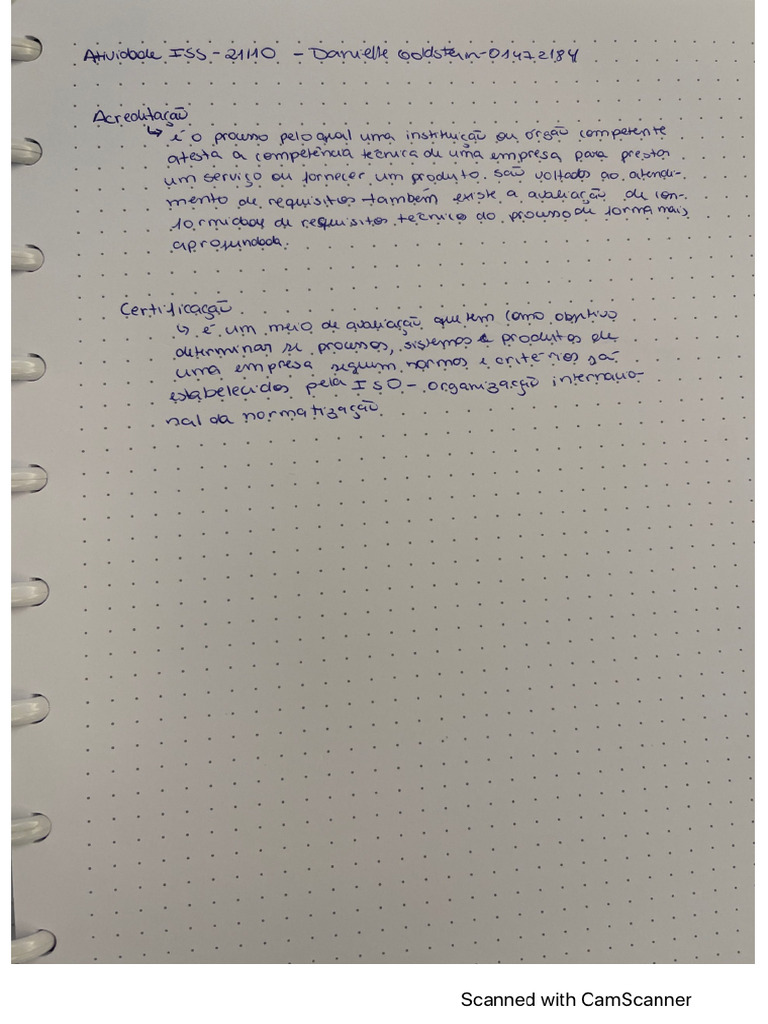 Atividade ISS - 21/10 - Danielle Goldstein - 01472184
Acreditação
↳ é o processo pelo qual uma instituição ou orgão competente
atesta a competência técnica de uma empresa para prestar
um serviço ou fornecer um produto. são voltados ao atendi-
mento de requisitos também existe a avaliação de con-
formidades de requisitos técnico do processo de forma mais
aprofundada.
Certificação
↳ é um meio de avaliação que tem como objetivo
determinar se processos, sistemas e produtos de
uma empresa seguem normas e critérios
estabelecidos pela ISO - organização internacio-
nal da normatização.
Scanned with CamScanner